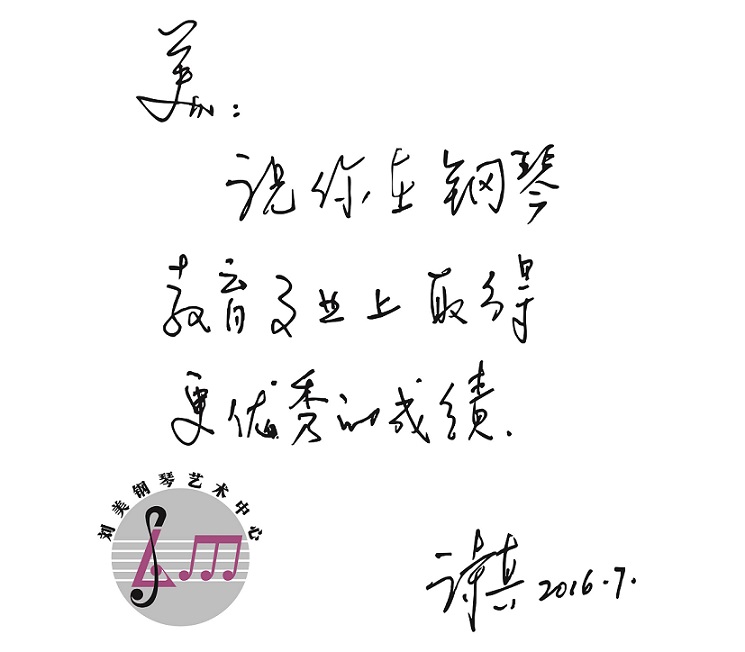 美：
祝你在钢琴
教育事业上取得
更优秀的成绩.
刘美钢琴艺术中心
2016.7.